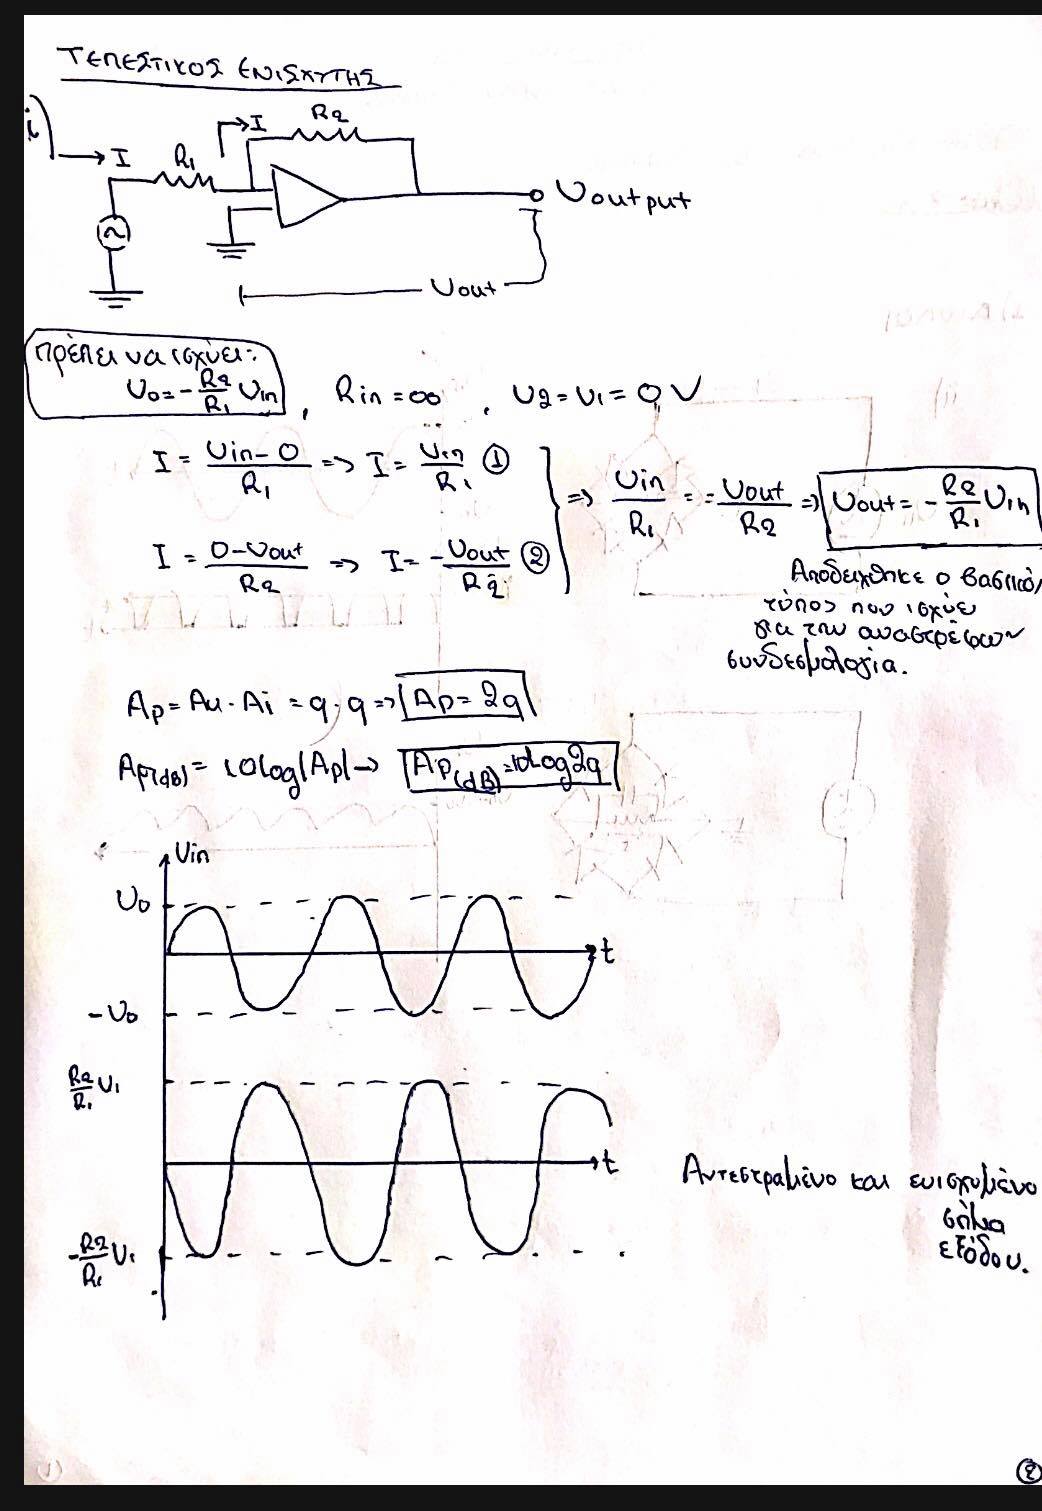 ΤΕΛΕΣΤΙΚΟΣ ΕΝΙΣΧΥΤΗΣ
i)
I
R₁
I
R₂
Uoutput
Uout
πρέπει να ισχύει:
U₀=-R₂/R₁ Uin , Rin=∞ , U₂=U₁=0 V
I = Uin-0/R₁ => I = Uin/R₁ ① } => Uin/R₁ = -Uout/R₂ => Uout = -R₂/R₁ Uin
I = 0-Uout/R₂ => I = -Uout/R₂ ②
Αποδείχθηκε ο βασικός
τύπος που ισχύει
για την αναστρέφων
συνδεσμολογία.
Ap = Au · Ai = q · q => Ap = 2q
Ap(dB) = 10log|Ap| → Ap(dB)=10log2q
Uin
U₀
t
-U₀
R₂/R₁ U₁
t
Αντεστραμένο και ενισχυμένο
σήμα
εξόδου.
-R₂/R₁ U₁
②